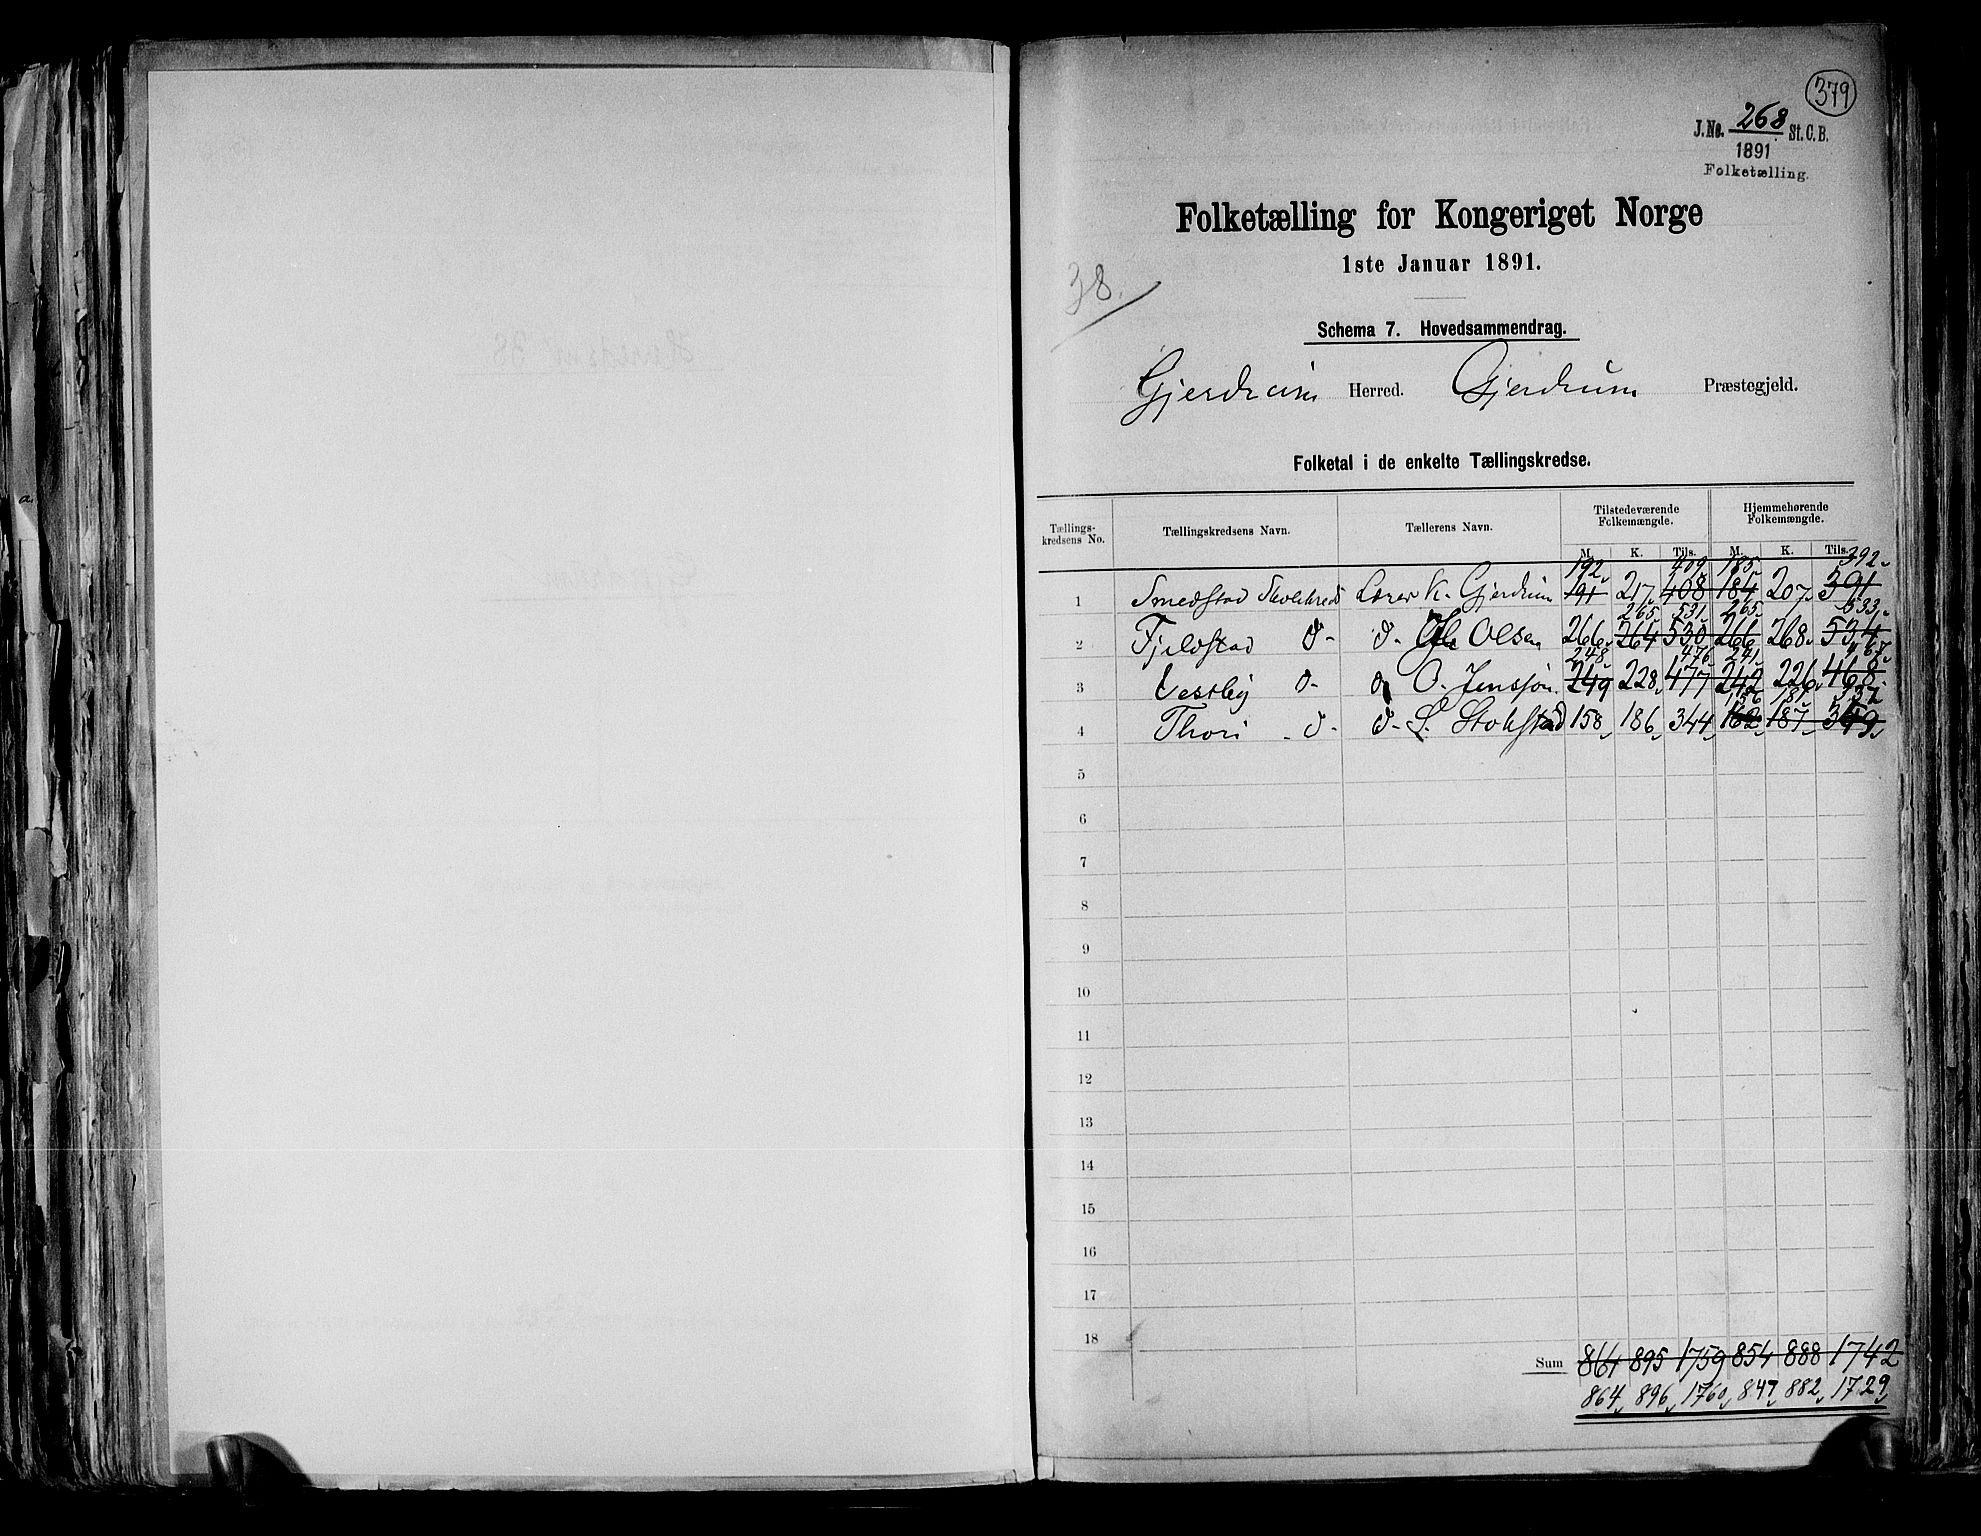 379
J. No. 268 St. C. B.
1891
Folketælling.
Folketælling for Kongeriget Norge
1ste Januar 1891.
38.
Schema 7. Hovedsammendrag.
Gjerdrum Herred. Gjerdrum Præstegjeld.
Folketal i de enkelte Tællingskredse.
Tællings-kredsens No. Tællingskredsens Navn. Tællerens Navn. Tilstedeværende Folkemængde. Hjemmehørende Folkemængde.
M. K. Tils. M. K. Tils.
192 409 185 392
1 Smedstad Skolekreds Lærer K. Gjerdrum 191 217 408 184 207 391
265 531 265 533
2 Fjeldstad d- d- Olsen 266 264 530 266 268 534
248 476 241 467
3 Vestby d- O. Jensson 249 228 477 242 226 468
156 181 337
4 Thori d- d- L. 158 186 344 162 187 349
5
6
7
8
9
10
11
12
13
14
15
16
17
18
Sum 864 895 1759 854 888 1742
864 896 1760 847 882 1729